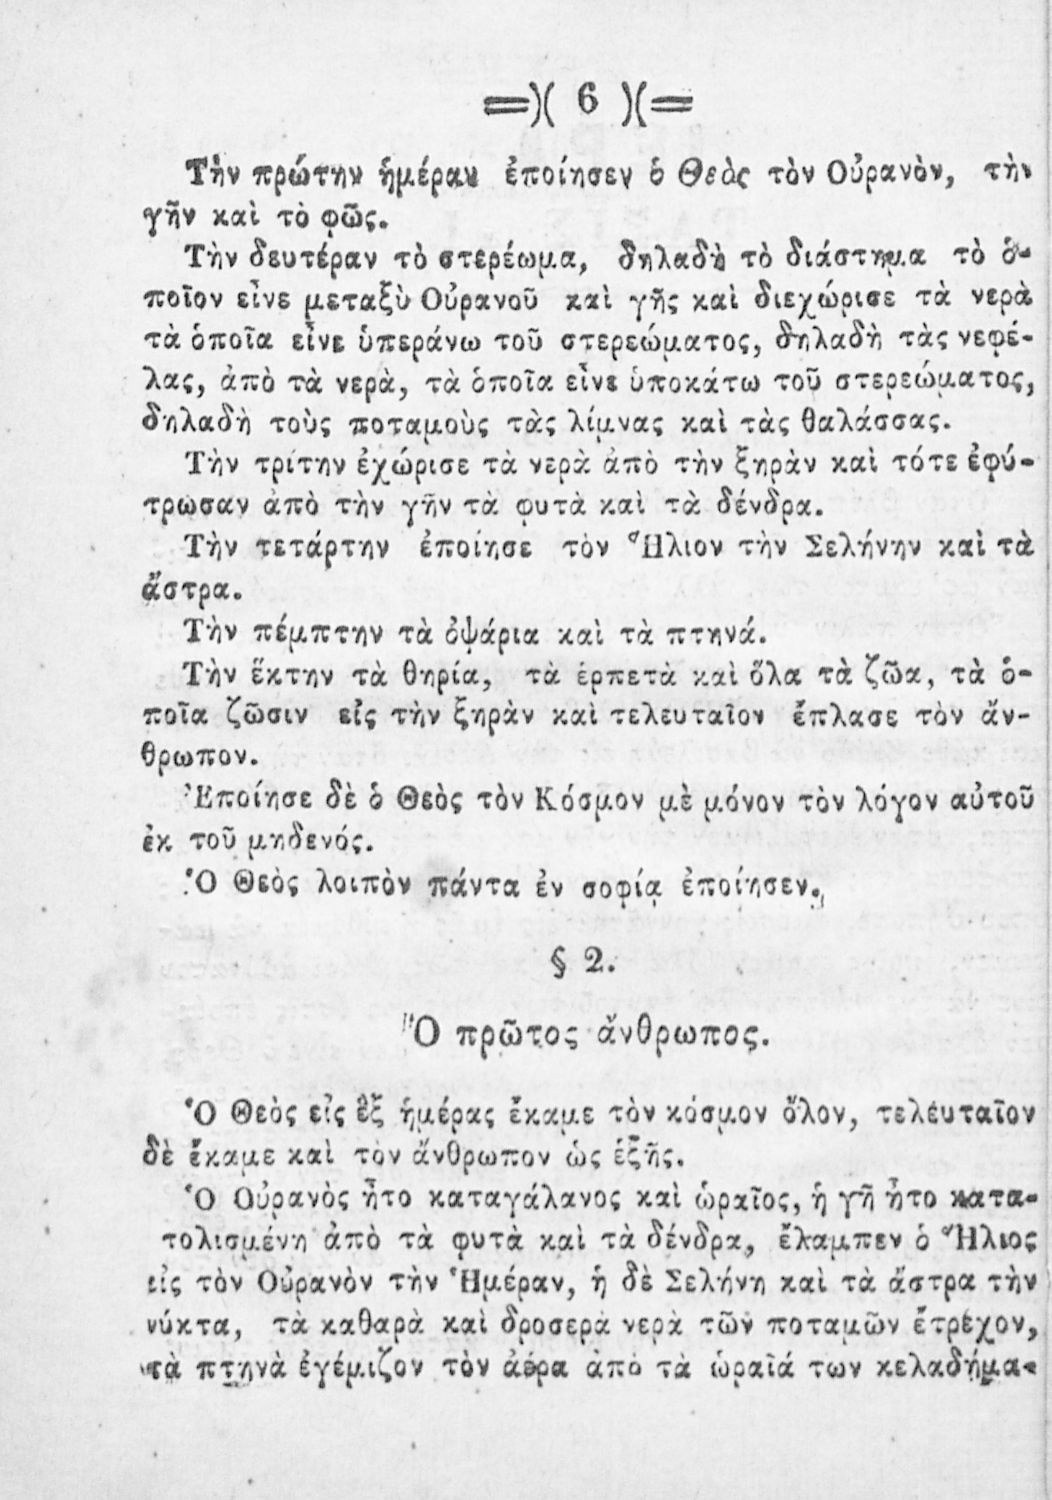 =)( 6 )(=
Τὴν πρώτην ἡμέραν ἐποίησεν ὁ Θεὸς τὸν Οὐρανὸν, τὴν
γῆν καὶ τὸ φῶς.
Τὴν δευτέραν τὸ στερέωμα, δηλαδὴ τὸ διάστημα τὸ ὁ-
ποῖον εἶνε μεταξὺ Οὐρανοῦ καὶ γῆς καὶ διεχώρισε τὰ νερὰ
τὰ ὁποῖα εἶνε ὑπεράνω τοῦ στερεώματος, δηλαδὴ τὰς νεφέ-
λας, ἀπὸ τὰ νερὰ, τὰ ὁποῖα εἶνε ὑποκάτω τοῦ στερεώματος,
δηλαδὴ τοὺς ποταμοὺς τὰς λίμνας καὶ τὰς θαλάσσας.
Τὴν τρίτην ἐχώρισε τὰ νερὰ ἀπὸ τὴν ξηρὰν καὶ τότε ἐφύ-
τρωσαν ἀπὸ τὴν γῆν τὰ φυτὰ καὶ τὰ δένδρα.
Τὴν τετάρτην ἐποίησε τὸν Ἥλιον τὴν Σελήνην καὶ τὰ
ἄστρα.
Τὴν πέμπτην τὰ ὀψάρια καὶ τὰ πτηνά.
Τὴν ἕκτην τὰ θηρία, τὰ ἑρπετὰ καὶ ὅλα τὰ ζῶα, τὰ ὁ-
ποῖα ζῶσιν εἰς τὴν ξηρὰν καὶ τελευταῖον ἔπλασε τὸν ἄν-
θρωπον.
Ἐποίησε δὲ ὁ Θεὸς τὸν Κόσμον μὲ μόνον τὸν λόγον αὐτοῦ
ἐκ τοῦ μηδενός.
Ὁ Θεὸς λοιπὸν πάντα ἐν σοφίᾳ ἐποίησεν.
§ 2.
Ὁ πρῶτος ἄνθρωπος.
Ὁ Θεὸς εἰς ἓξ ἡμέρας ἔκαμε τὸν κόσμον ὅλον, τελευταῖον
δὲ ἔκαμε καὶ τὸν ἄνθρωπον ὡς ἑξῆς.
Ὁ Οὐρανὸς ἦτο καταγάλανος καὶ ὡραῖος, ἡ γῆ ἦτο κατα-
τολισμένη ἀπὸ τὰ φυτὰ καὶ τὰ δένδρα, ἔλαμπεν ὁ Ἥλιος
εἰς τὸν Οὐρανὸν τὴν Ἡμέραν, ἡ δὲ Σελήνη καὶ τὰ ἄστρα τὴν
νύκτα, τὰ καθαρὰ καὶ δροσερὰ νερὰ τῶν ποταμῶν ἔτρεχον,
τὰ πτηνὰ ἐγέμιζον τὸν ἀέρα ἀπὸ τὰ ὡραῖά των κελαδήμα-